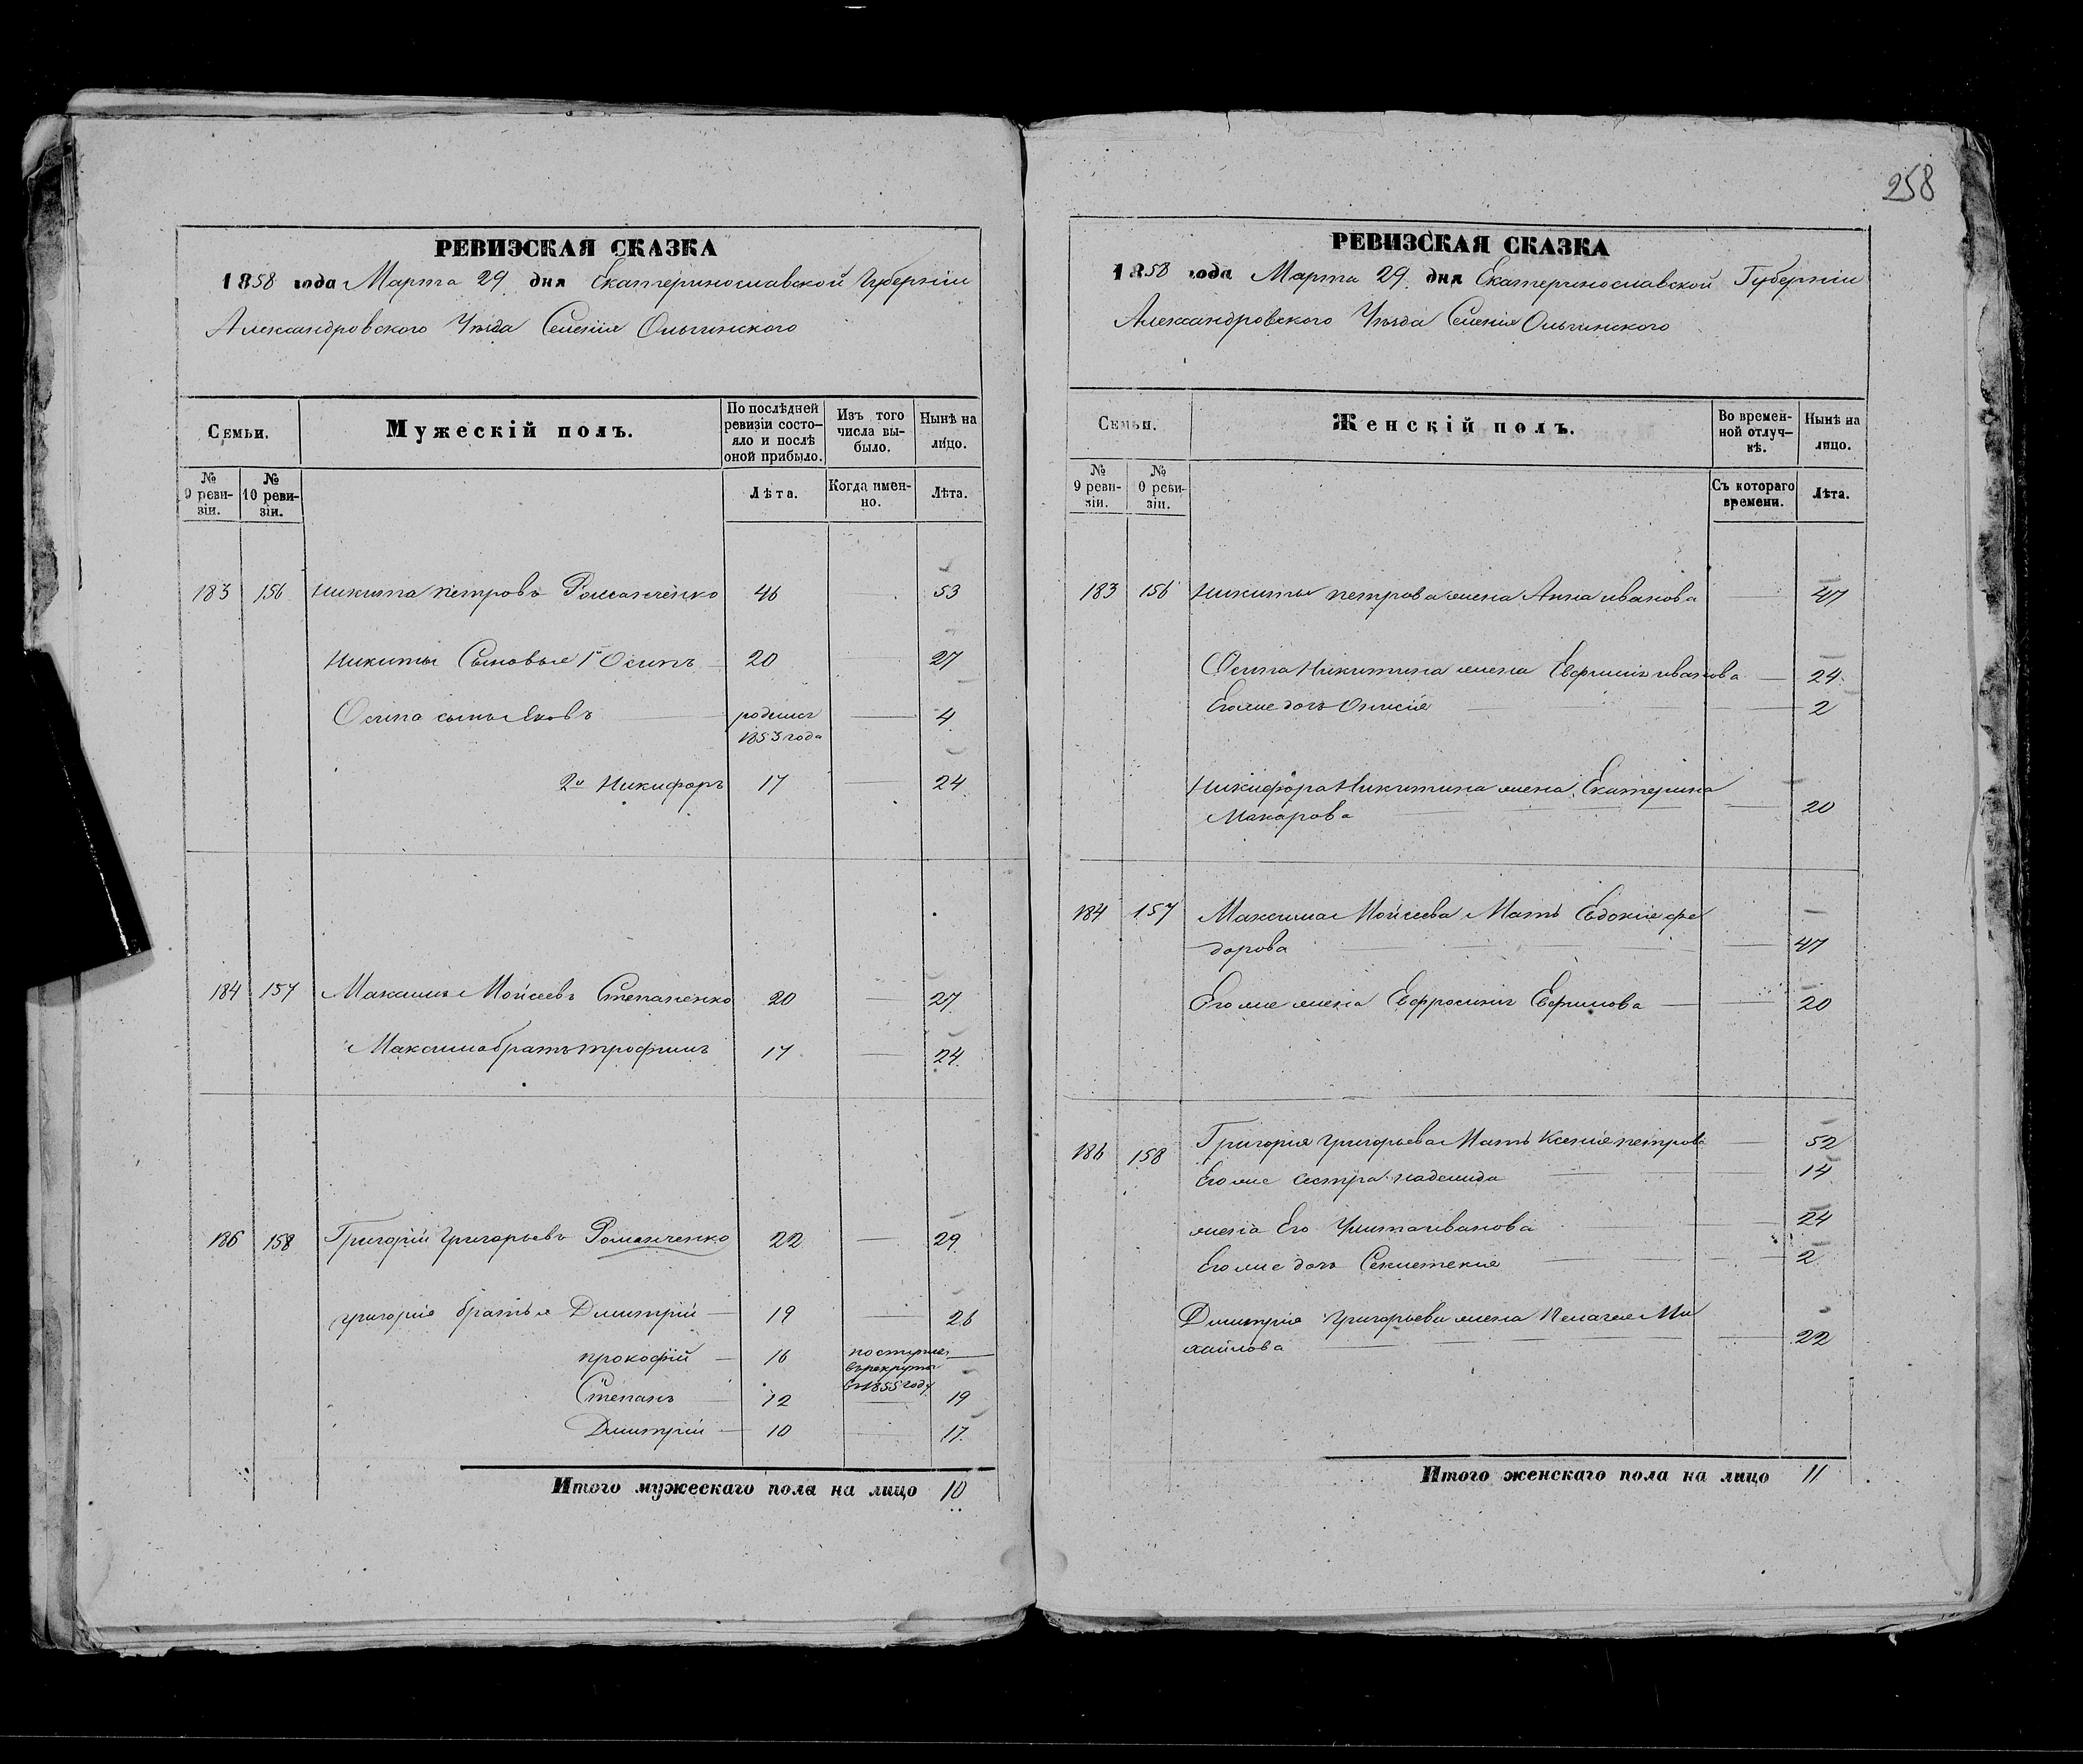 258
РЕВИЗСКАЯ СКАЗКА
1858 года Марта 29 дня Екатеринославской Губернии
Александровского Уезда Селения Ольгинского
Семьи.
Мужескій полъ.
По послѣдней ревизіи состо-яло и послѣ оной прибыло.
Изъ того числа вы-было.
Нынѣ на лицо.
№ 9 реви-зіи.
№ 10 реви-зіи.
Лѣта.
Когда имен-но.
Лѣта.
183 156 Никита петровъ Романченко 46 53
Никиты Сыновья 1й Осипъ 20 27
Осипа сынъ Яковъ родился 1853 года 4
2й Никифоръ 17 24
184 157 Максимъ Мойсеевъ Степаненко 20 27
Максима братъ трофимъ 17 24
186 158 Григорій Григорьевъ Романченко 22 29
григория братья Дмитрій 19 26
прокофій 16 поступил въ рекруты в 1855 году
Степанъ 12 19
Дмитрій 10 17
Итого мужескаго пола на лицо 10
РЕВИЗСКАЯ СКАЗКА
1858 года Марта 29 дня Екатеринославской Губернии
Александровского Уезда Селения Ольгинского
Семьи.
Женскій полъ.
Во времен-ной отлуч-кѣ.
Нынѣ на лицо.
№ 9 реви-зіи.
№ 0 реви-зіи.
Съ котораго времени.
Лѣта.
183 156 Никиты петрова жена Анна иванова 47
Осипа Никитина жена Евфимия иванова 24
Его же дочь 2
Никифора Никитина жена Екатерина
Макарова 20
184 157 Максима Мойсеева Мать Евдокия фе
дорова 47
Его же жена Евфросиния Ефимова 20
186 158 Григория григорьева Мать Ксения петрова 52
Его же сестра надежда 14
жена Его иванова 24
Его же дочь 2
Дмитрия Григорьева жена Пелагея Ми
хайлова 22
Итого женскаго пола на лицо 11